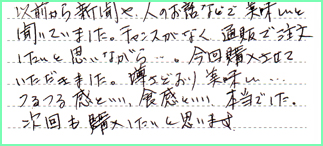 以前から新聞や、人のお話などで美味いと
聞いていました。チャンスがなく通販で注文
したいと思いながら…。今回購入させて
いただきました。噂どおり美味い…
つるつる感といい、食感といい、本当でした。
次回も購入したいと思います